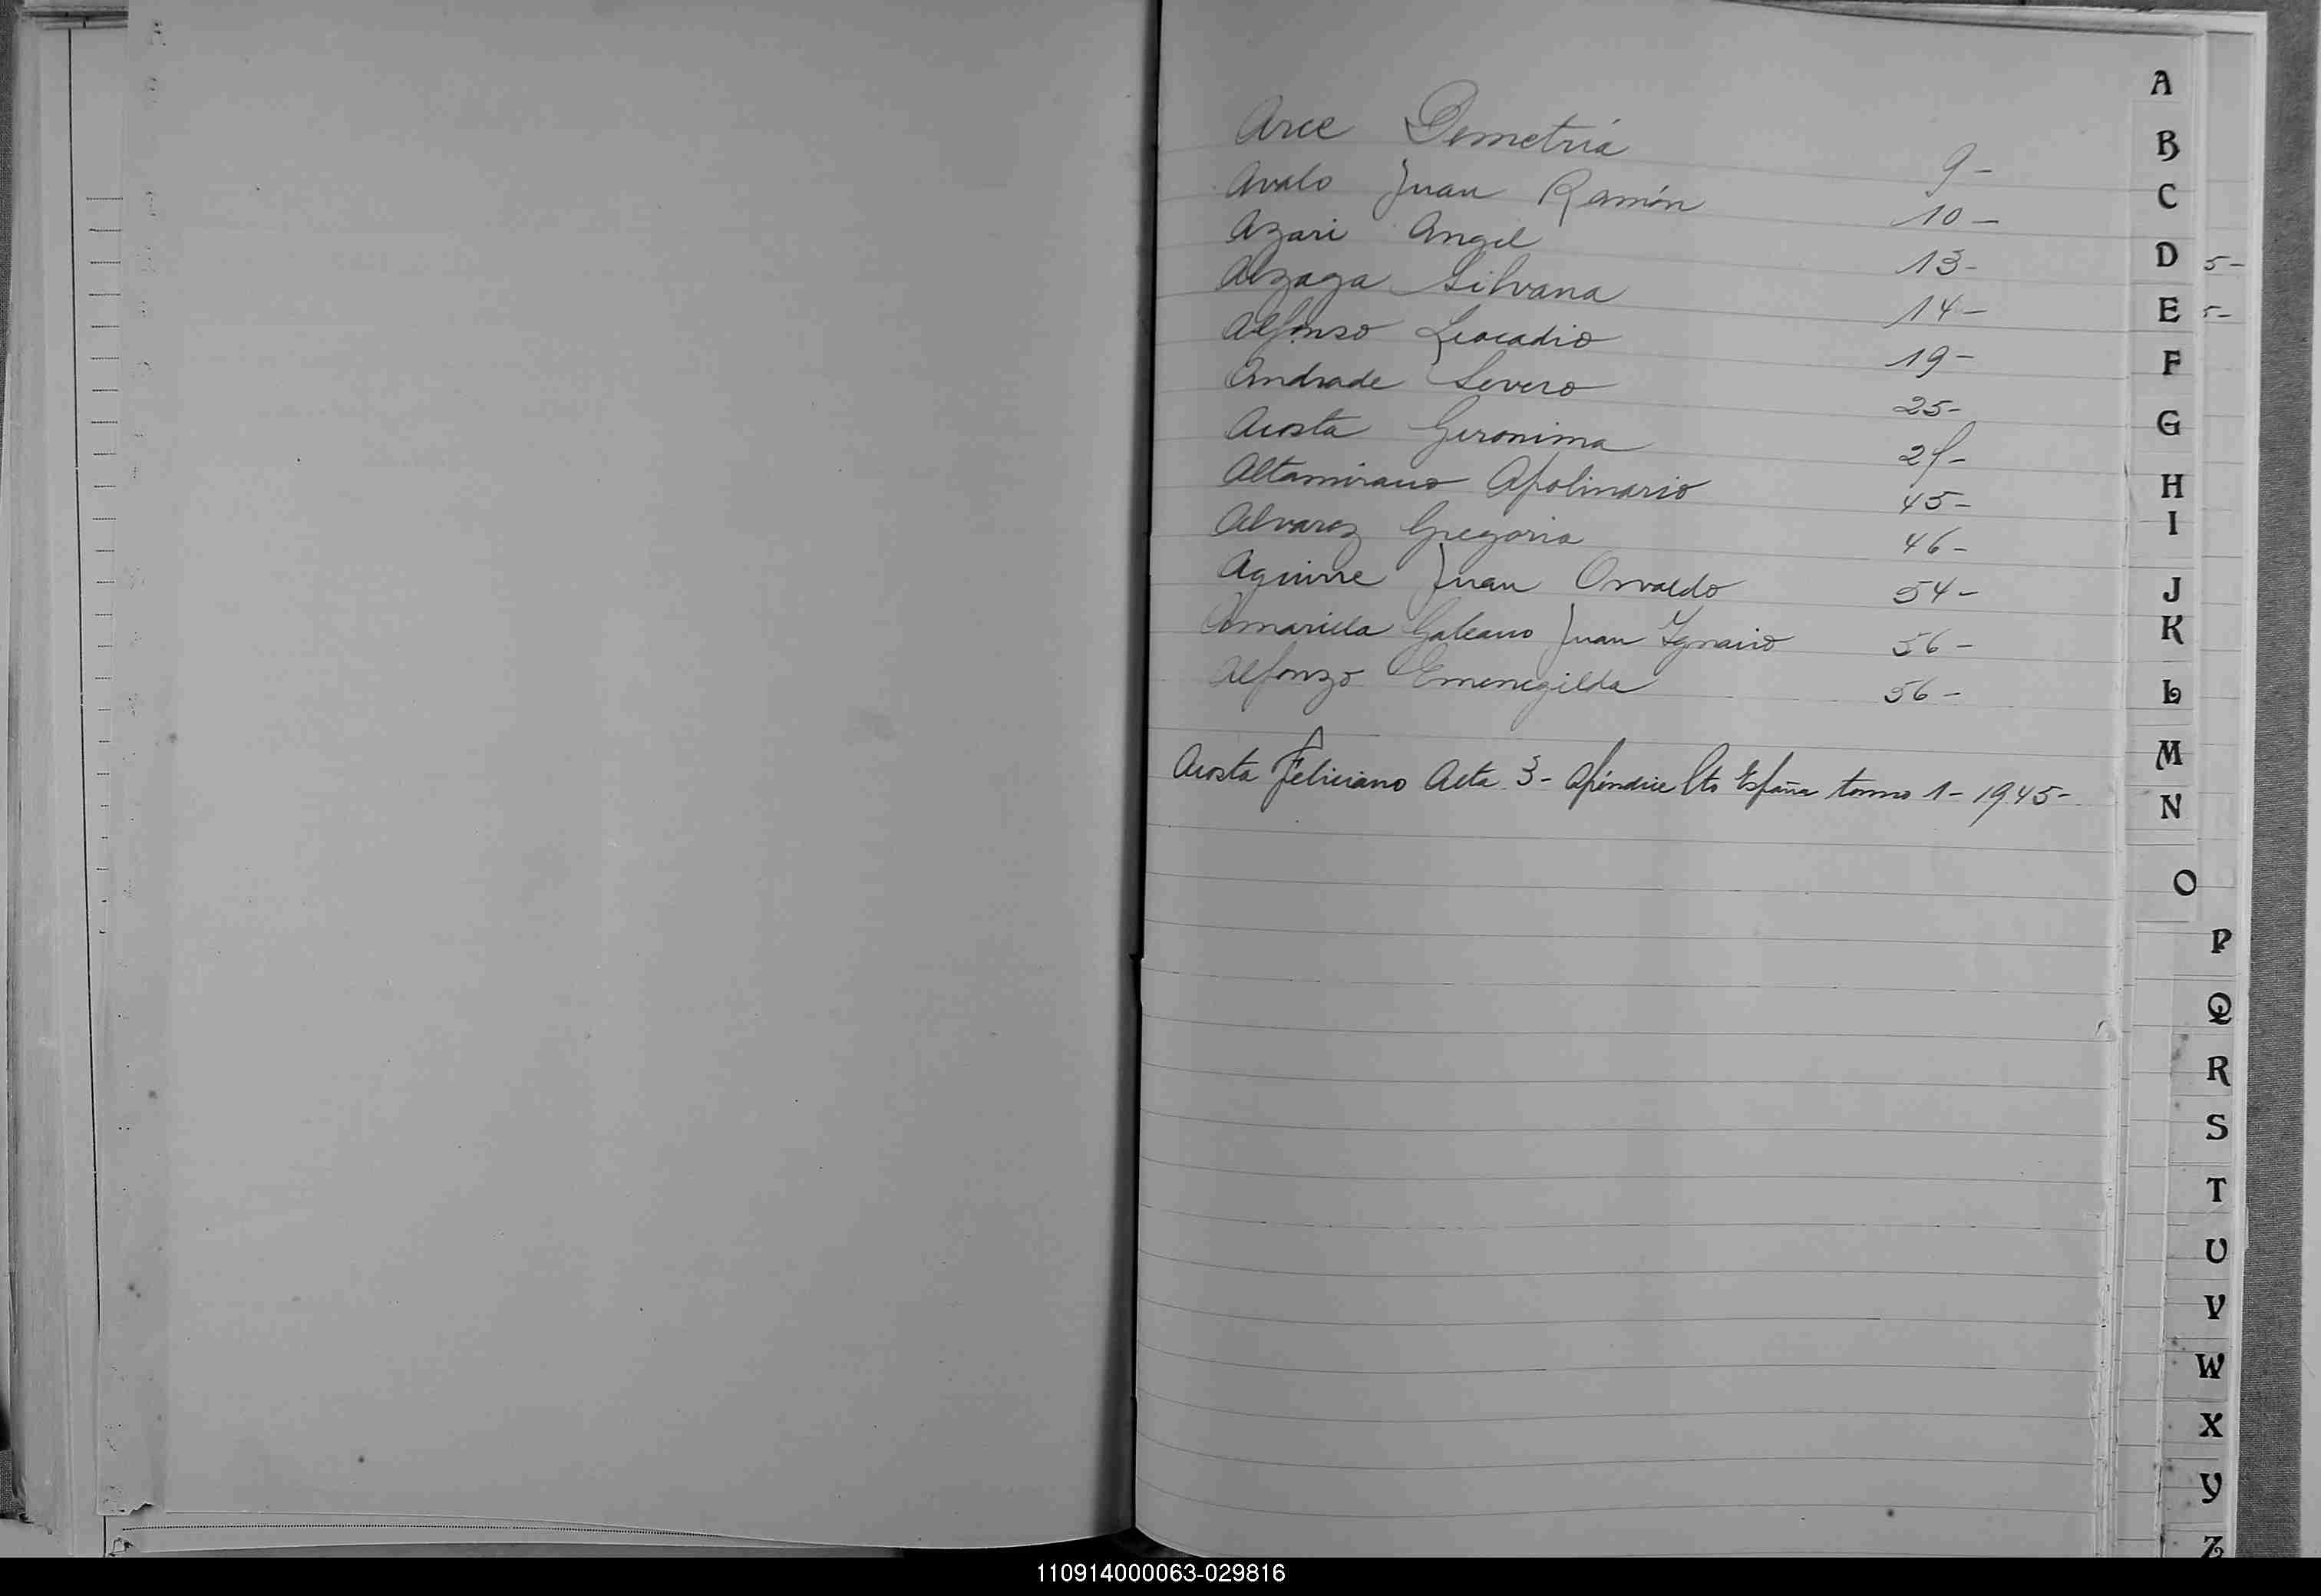 Arce Demetria 9-
Avalo Juan Ramón 10-
Azari Angel 13-
Alzaga Silvana 14-
Alfonso Leocadio 19-
Andrade Severo 25-
Acosta Geronima
Altamirano Apolinario 45-
Alvarez Gregoria 46-
Aguirre Juan Osvaldo 54-
Amarilla Galeano Juan Ygnacio 56-
Alfonzo Emenegilda 56-
Acosta Feliciano Acta 3- Apéndice Pto España tomo 1- 1945-
A
B
C
D 5-
E
F
G
H
I
J
K
L
M
N
O
P
Q
R
S
T
U
V
W
X
Y
Z
110914000063-029816